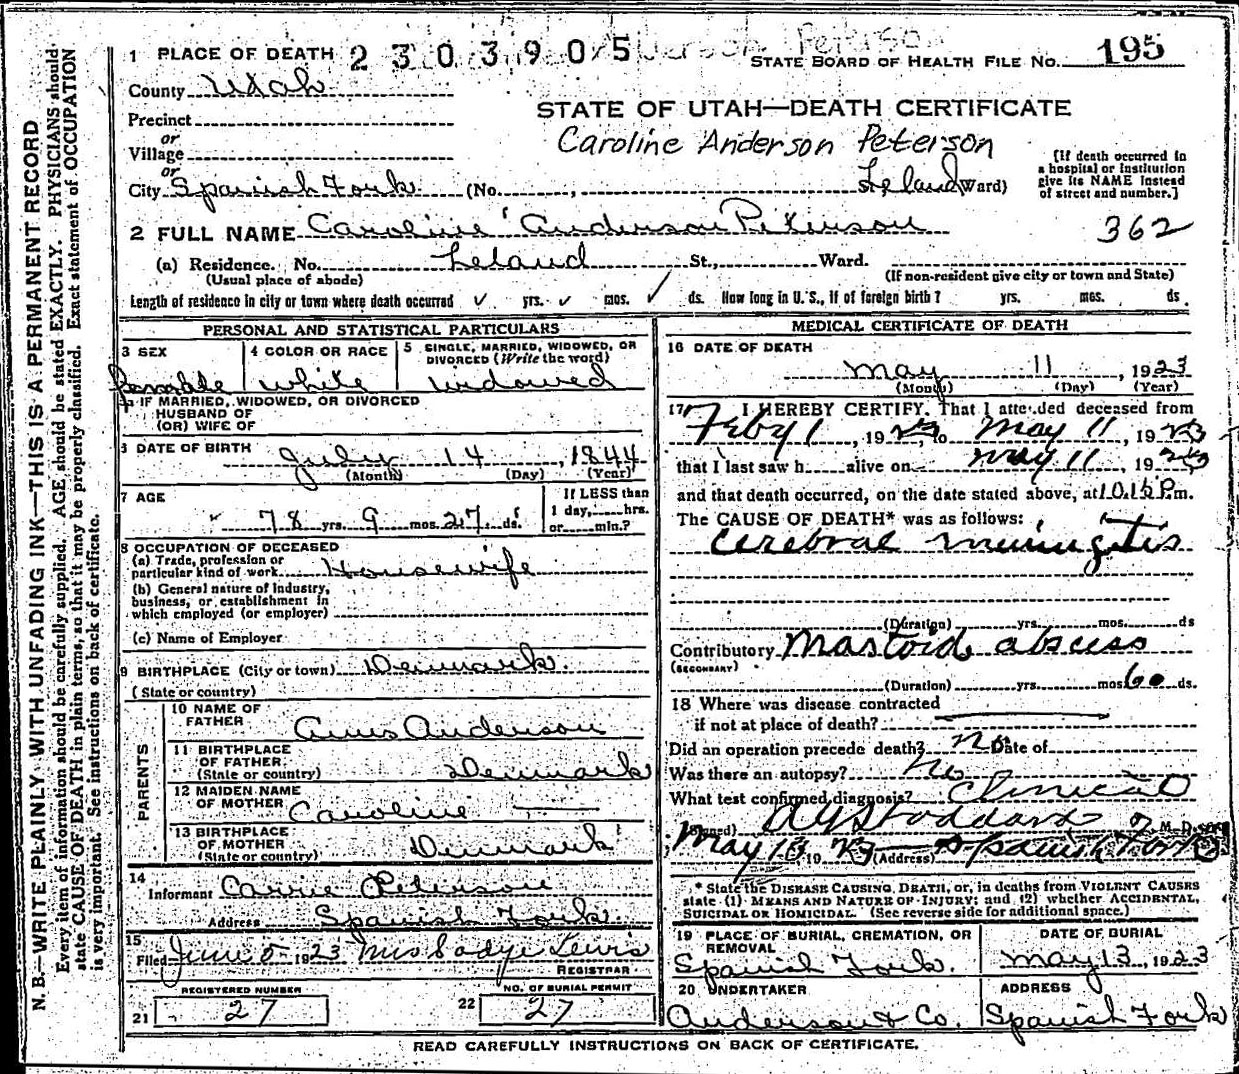 1 PLACE OF DEATH 2303905 Anderson Peterson
STATE BOARD OF HEALTH FILE NO. 195
County Utah
STATE OF UTAH—DEATH CERTIFICATE
Precinct
Caroline Anderson Peterson
or
Village
or
City Spanish Fork (No. ; Leland Ward)
[If death occurred in
a hospital or institution
give its NAME instead
of street and number.]
2 FULL NAME Caroline Anderson Peterson
362
(a) Residence. No. Leland St., Ward.
(Usual place of abode) (If non-resident give city or town and State)
Length of residence in city or town where death occurred ✓ yrs. ✓ mos. ✓ ds. How long in U. S., if of foreign birth? yrs. mos. ds
PERSONAL AND STATISTICAL PARTICULARS
3 SEX
female
4 COLOR OR RACE
white
5 SINGLE, MARRIED, WIDOWED, OR
DIVORCED (Write the word)
widowed
IF MARRIED, WIDOWED, OR DIVORCED
HUSBAND OF
(OR) WIFE OF
6 DATE OF BIRTH July 14, 1844
(Month) (Day) (Year)
7 AGE
78 yrs. 9 mos. 27 ds.
If LESS than
1 day, hrs.
or min.?
8 OCCUPATION OF DECEASED
(a) Trade, profession or
particular kind of work Housewife
(b) General nature of industry,
business, or establishment in
which employed (or employer)
(c) Name of Employer
9 BIRTHPLACE (City or town) Denmark.
(State or country)
PARENTS
10 NAME OF
FATHER Anderson
11 BIRTHPLACE
OF FATHER
(State or country) Denmark
12 MAIDEN NAME
OF MOTHER Caroline —
13 BIRTHPLACE
OF MOTHER
(State or country) Denmark
14
Informant Carrie Peterson
Address Spanish Fork.
15
Filed June 5 1923 Mrs Sadye Lewis
REGISTRAR
REGISTERED NUMBER
21 27
NO. OF BURIAL PERMIT
22 27
MEDICAL CERTIFICATE OF DEATH
16 DATE OF DEATH
May 11, 1923
(Month) (Day) (Year)
17 I HEREBY CERTIFY, That I attended deceased from
Feby 1, 1923, to May 11, 1923
that I last saw h alive on May 11 1923
and that death occurred, on the date stated above, at 10.15 P.m.
The CAUSE OF DEATH* was as follows:
Cerebral meningitis
(Duration) yrs. mos. ds
Contributory Mastoid abscess
(SECONDARY)
(Duration) yrs. mos. 60 ds.
18 Where was disease contracted
if not at place of death?
Did an operation precede death? no Date of
Was there an autopsy? No
What test confirmed diagnosis? Clinical
(Signed) Stoddard M. D.
May 13 1923 (Address) Spanish Fork
* State the DISEASE CAUSING DEATH, or, in deaths from VIOLENT CAUSES
state (1) MEANS AND NATURE OF INJURY; and (2) whether ACCIDENTAL,
SUICIDAL OR HOMICIDAL. (See reverse side for additional space.)
19 PLACE OF BURIAL, CREMATION, OR
REMOVAL
Spanish Fork.
DATE OF BURIAL
May 13, 1923
20 UNDERTAKER
Anderson & Co.
ADDRESS
Spanish Fork
READ CAREFULLY INSTRUCTIONS ON BACK OF CERTIFICATE.
N. B.—WRITE PLAINLY WITH UNFADING INK—THIS IS A PERMANENT RECORD
Every item of information should be carefully supplied. AGE should be stated EXACTLY. PHYSICIANS should
state CAUSE OF DEATH in plain terms, so that it may be properly classified. Exact statement of OCCUPATION
is very important. See instructions on back of certificate.